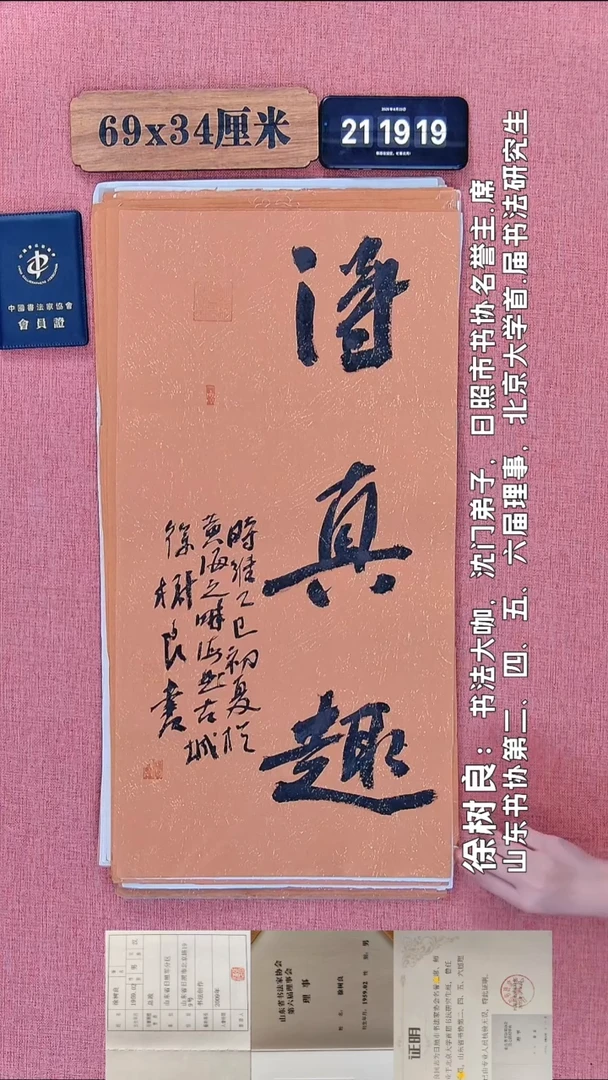 69x34厘米
2025年6月22日
21 19 19
中國書法家協會
會員證
得
真
趣
時維乙巳初夏於
黄海之畔海曲古城
徐樹良書
徐树良：书法大咖，沈门弟子，日照市书协名誉主.席
山东书协第二、四、五、六届理事，北京大学首.届书法研究生
山东省书法家协会
第六届理事会
理 事
徐树良
男
1959.02
2009年
证明